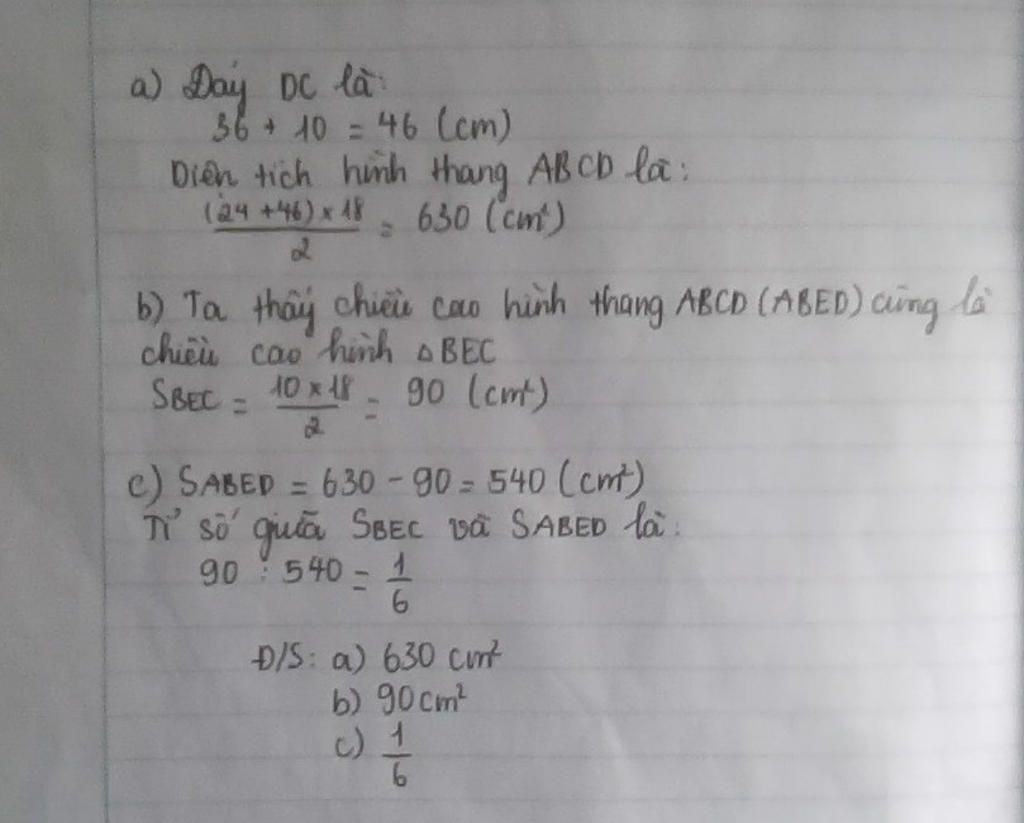 a) Đáy DC là:
36 + 10 = 46 (cm)
Diện tích hình thang ABCD là:
(24 + 46) × 18 / 2 = 630 (cm²)
b) Ta thấy chiều cao hình thang ABCD (ABED) cũng là
chiều cao hình △BEC
SBEC = 10 × 18 / 2 = 90 (cm²)
c) SABED = 630 - 90 = 540 (cm²)
Tỉ số giữa SBEC và SABED là:
90 : 540 = 1/6
Đ/S: a) 630 cm²
b) 90cm²
c) 1/6